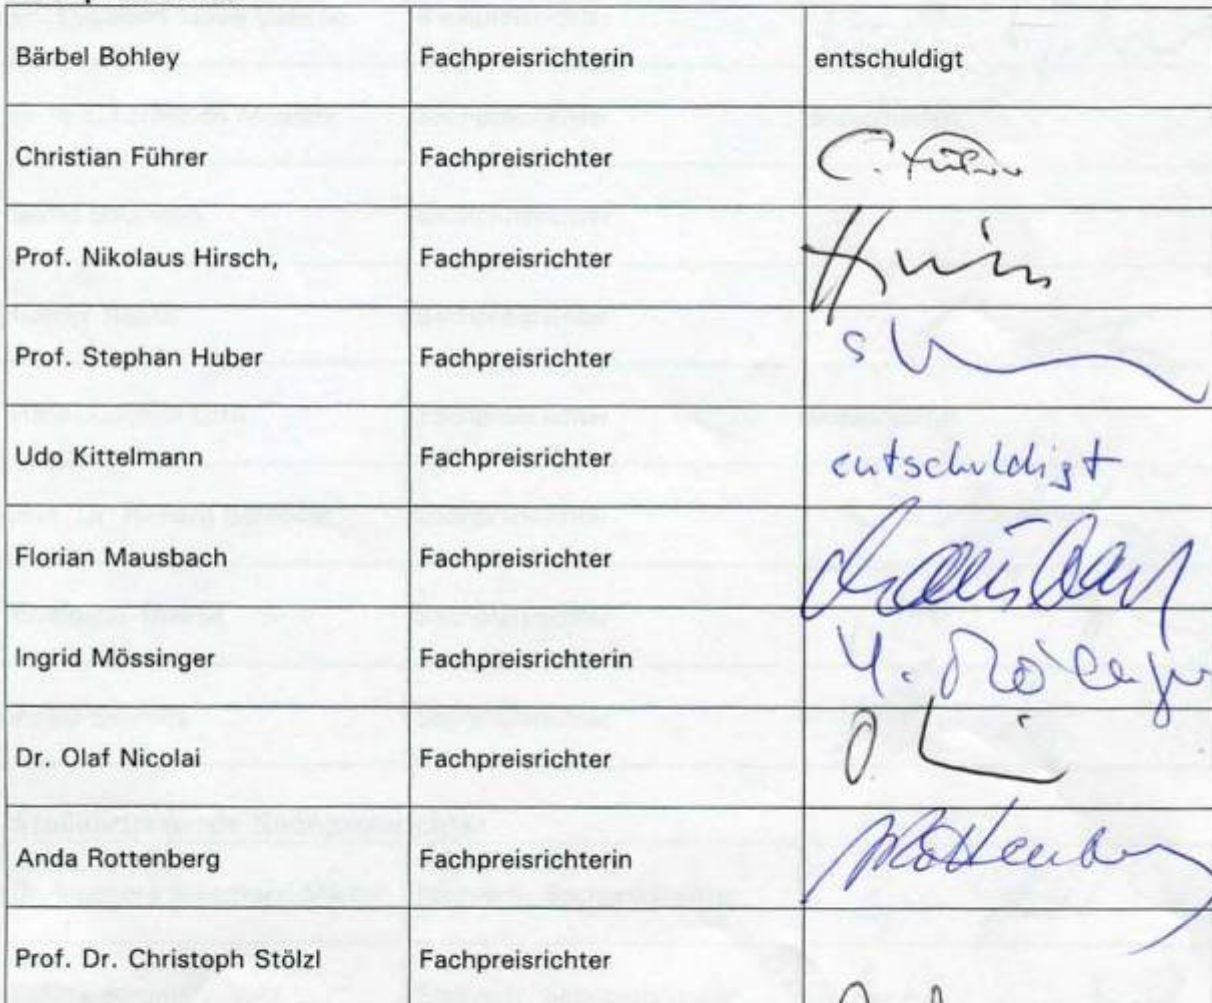 Bärbel Bohley Fachpreisrichterin entschuldigt
Christian Führer Fachpreisrichter C. Führer
Prof. Nikolaus Hirsch, Fachpreisrichter
Prof. Stephan Huber Fachpreisrichter
Udo Kittelmann Fachpreisrichter entschuldigt
Florian Mausbach Fachpreisrichter Mausbach
Ingrid Mössinger Fachpreisrichterin
Dr. Olaf Nicolai Fachpreisrichter
Anda Rottenberg Fachpreisrichterin Rottenberg
Prof. Dr. Christoph Stölzl Fachpreisrichter